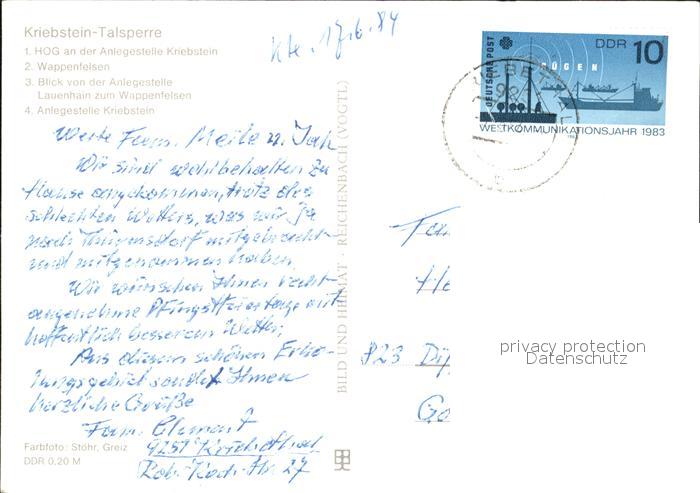 Kriebstein-Talsperre
1. HOG an der Anlegestelle Kriebstein
2. Wappenfelsen
3. Blick von der Anlegestelle
Lauenhain zum Wappenfelsen
4. Anlegestelle Kriebstein
Kte. 17.6.84
Werte Fam. Meile u.
Wir sind wohlbehalten zu
Hause angekommen, trotz des
schlechten Wetters, was wir ja
nach mitgebracht
und mitgenommen haben.
Wir wünschen Ihnen recht
angenehme Pfingstfeiertage mit
hoffentlich besserem Wetter,
Aus diesem schönen Erho-
lungsgebiet sendet Ihnen
herzliche Grüße
Fam. Clement
9251
Rob.-Koch-Str. 27
Farbfoto: Stöhr, Greiz
DDR 0,20 M
BILD UND HEIMAT · REICHENBACH (VOGTL)
DEUTSCHE POST
DDR 10
RÜGEN
WELTKOMMUNIKATIONSJAHR 1983
823
privacy protection
Datenschutz